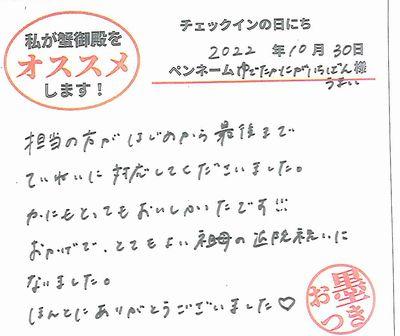 私が蟹御殿を
オススメ
します！
チェックインの日にち
2022 年 10 月 30 日
ペンネーム ゆでたかにがいちばん 様
うまい
担当の方がはじめから最後まで
ていねいに対応してくださいました。
かにもとってもおいしかいたです!!!
おかげで、とてもよい祖母の退院祝いに
なりました。
ほんとにありがとうございました♡
お墨つき